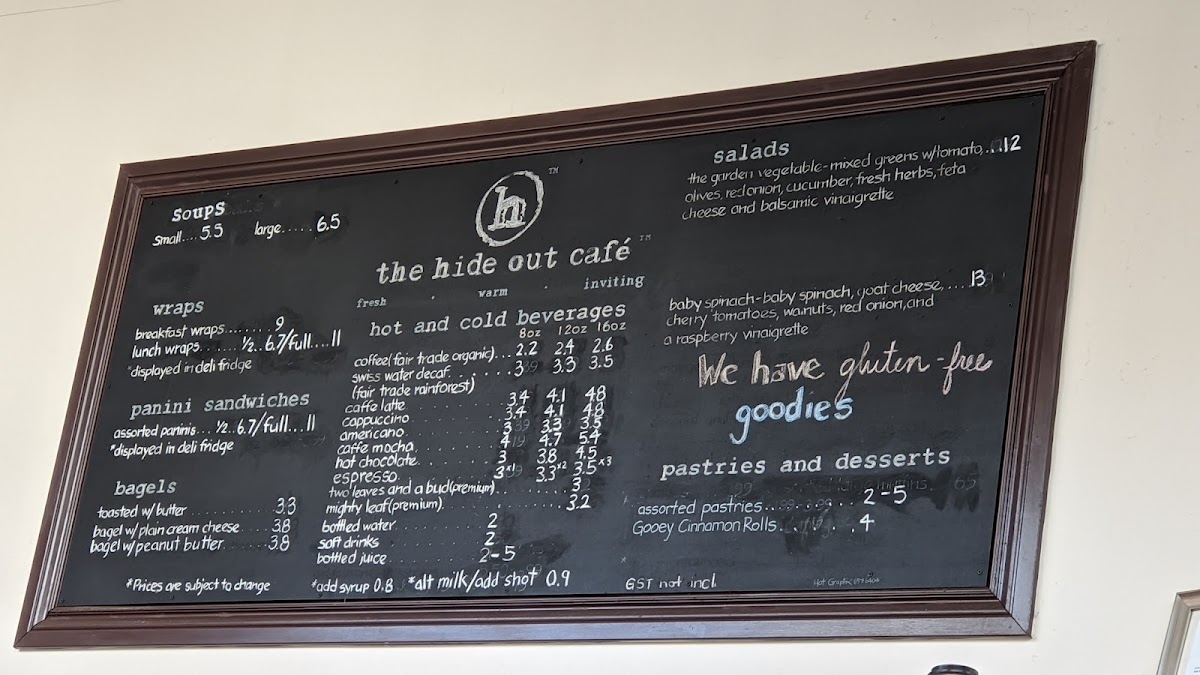 soups
small....5.5 large.....6.5
wraps
breakfast wraps.......9
lunch wraps.......½..6.7/full....11
*displayed in deli fridge
panini sandwiches
assorted paninis...½..6.7/full...11
*displayed in deli fridge
bagels
toasted w/ butter 3.3
bagel w/ plain cream cheese 3.8
bagel w/ peanut butter 3.8
*Prices are subject to change
h TM
the hide out café TM
fresh · warm · inviting
hot and cold beverages
8oz 12oz 16oz
coffee(fair trade organic)...2.2 2.4 2.6
swiss water decaf........3 3.3 3.5
(fair trade rainforest)
caffe latte 3.4 4.1 4.8
cappuccino 3.4 4.1 4.8
americano 3 3.3 3.5
caffe mocha 4 4.7 5.4
hot chocolate 3 3.8 4.5
espresso 3 x1 3.3 x2 3.5 x3
two leaves and a bud(premium) 3
mighty leaf(premium) 3.2
bottled water 2
soft drinks 2
bottled juice 2-5
*add syrup 0.8 *alt milk/add shot 0.9
salads
the garden vegetable-mixed greens w/tomato,...12
olives, red onion, cucumber, fresh herbs, feta
cheese and balsamic vinaigrette
baby spinach-baby spinach, goat cheese,....13
cherry tomatoes, walnuts, red onion,and
a raspberry vinaigrette
We have gluten-free
goodies
pastries and desserts
assorted pastries........2-5
Gooey Cinnamon Rolls......4
GST not incl.